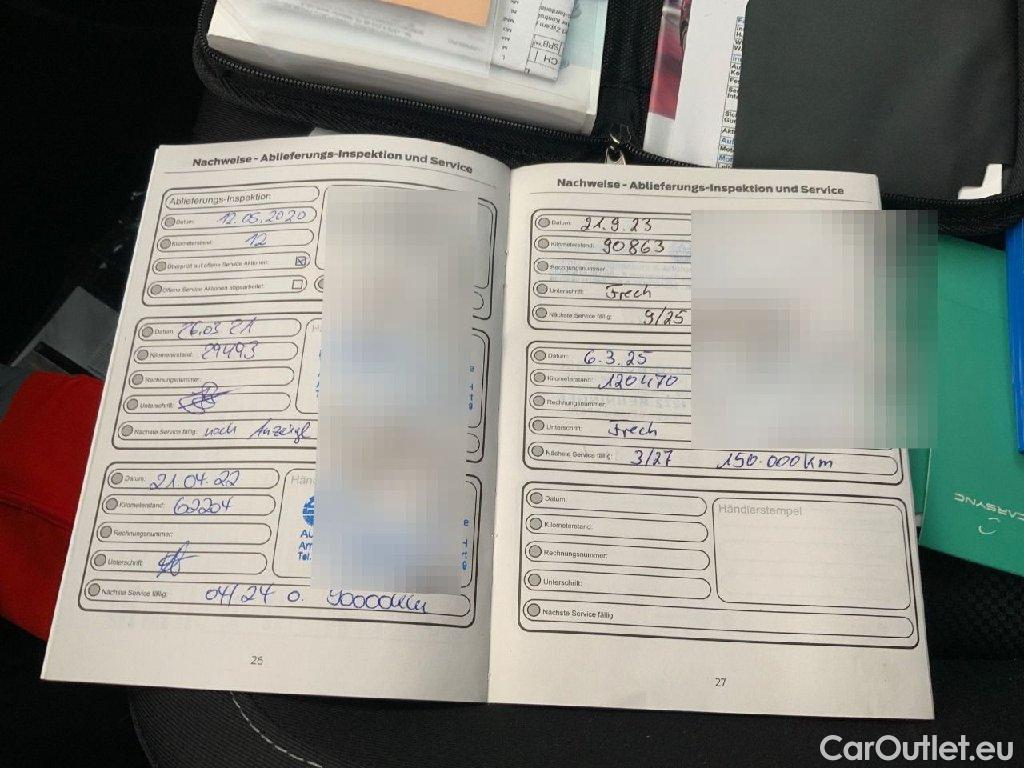 Nachweise - Ablieferungs-Inspektion und Service
Ablieferungs-Inspektion
Datum: 12.05.2020
Kilometerstand: 12
Überprüft auf offene Service Aktionen:
Offene Service Aktionen abgearbeitet:
Datum: 26.03 21
Kilometerstand: 29493
Rechnungsnummer:
Unterschrift:
Nächste Service fällig: nach Anzeige
Datum: 21.04.22
Kilometerstand: 62204
Rechnungsnummer:
Unterschrift:
Nächste Service fällig: 04/24 o. 90000km
Händ
Au
Tel.
26
Nachweise - Ablieferungs-Inspektion und Service
Datum: 21.9.23
Kilometerstand: 90863
Rechnungsnummer:
Unterschrift: Frech
Nächste Service fällig: 9/25
Datum: 6.3.25
Kilometerstand: 120470
Rechnungsnummer:
Unterschrift: Frech
Nächste Service fällig: 3/27 150.000km
Datum:
Kilometerstand:
Rechnungsnummer:
Unterschrift:
Nächste Service fällig
Händlerstempel
27
CARSYNC
CarOutlet.eu